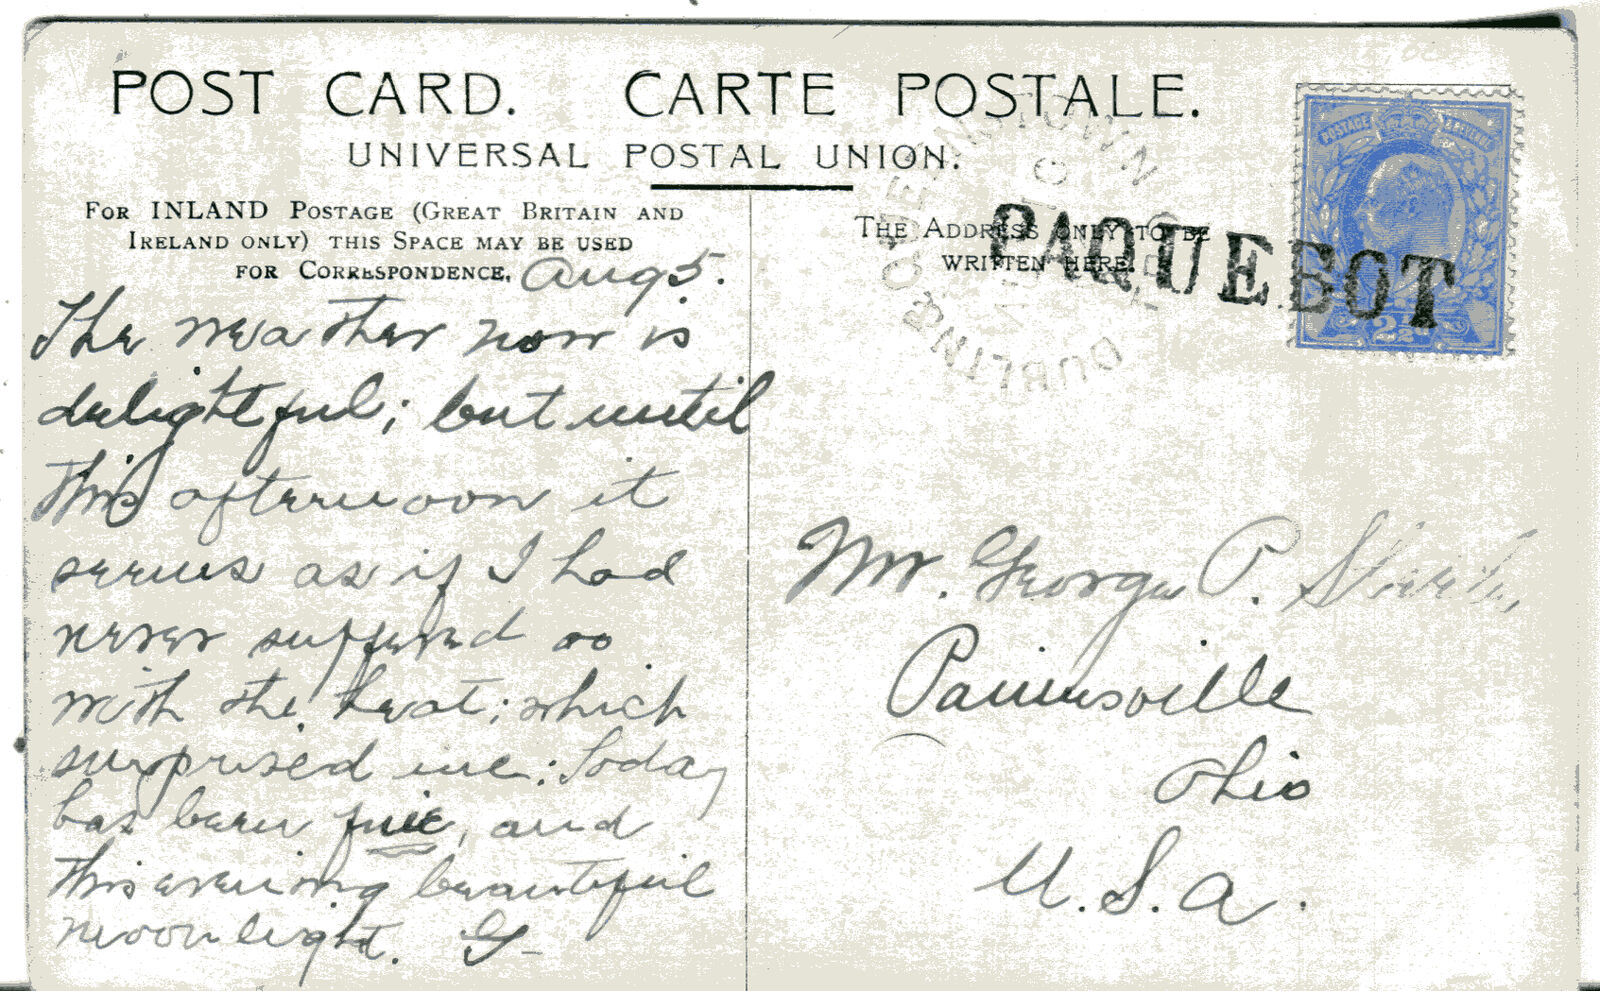 POST CARD. CARTE POSTALE.
UNIVERSAL POSTAL UNION.
FOR INLAND POSTAGE (GREAT BRITAIN AND
IRELAND ONLY) THIS SPACE MAY BE USED
FOR CORRESPONDENCE.
Aug 5.
The weather now is
delightful; but until
this afternoon it
seems as if I had
never suffered so
with the heat; which
surprised me. Today
has been fine, and
this evening beautiful
moonlight. G-
THE ADDRESS ONLY TO BE
WRITTEN HERE.
PAQUEBOT
QUEENSTOWN
DUBLIN &
POSTAGE & REVENUE
2½d
Mr. George P.
Painesville
Ohio
U.S.A.